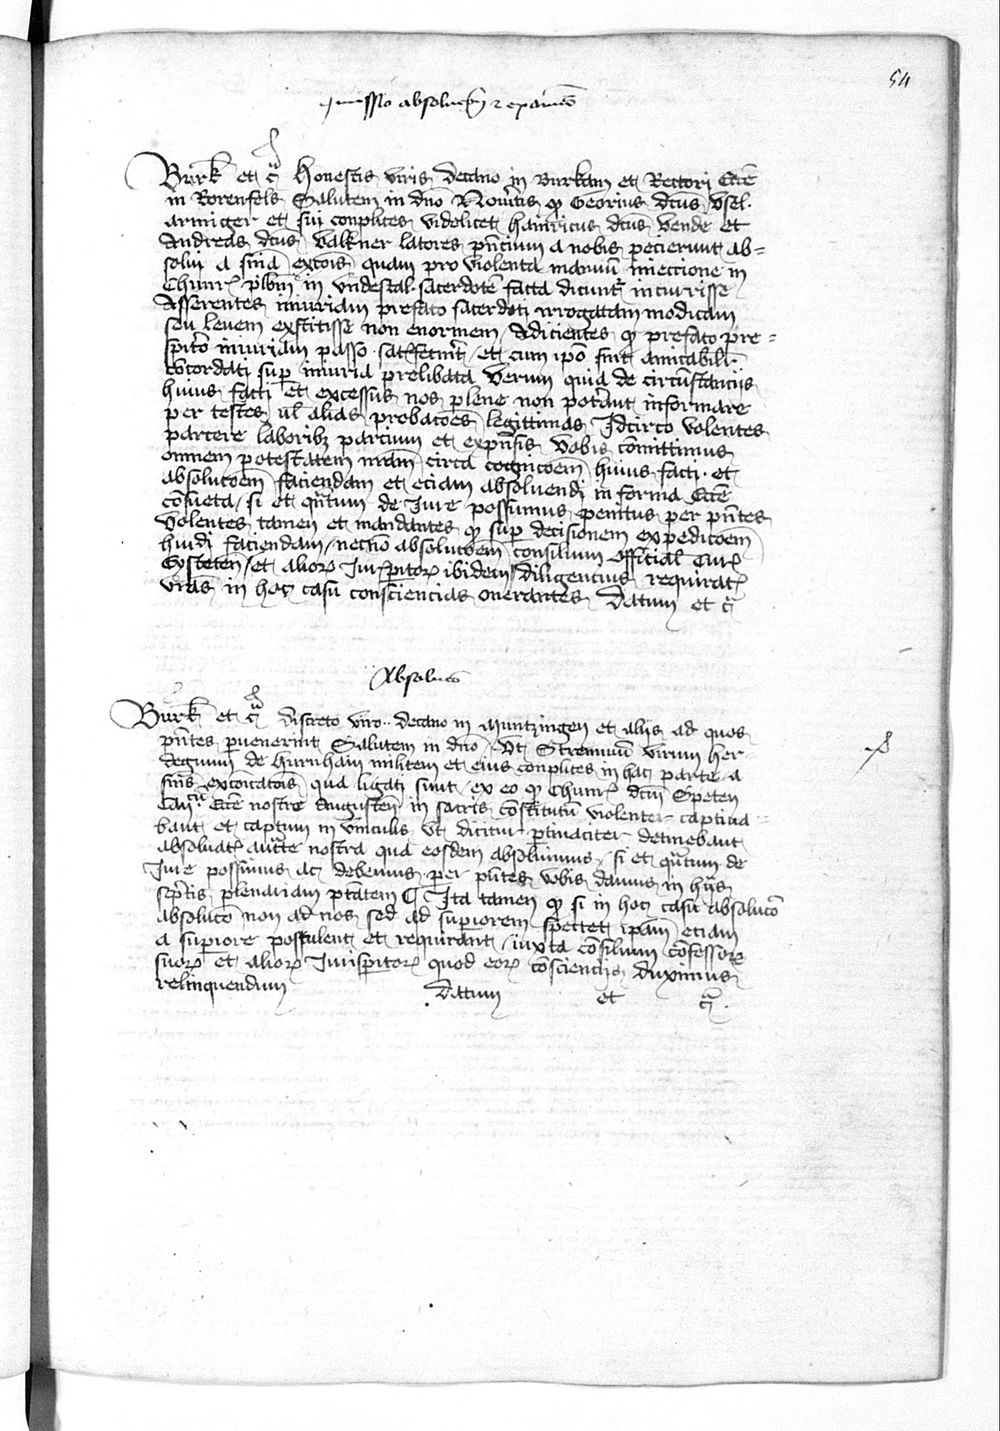 54
absoluend̄ et exam̄es
Burk̄ et c̄ Honestis viris decano in Burkam et Rectori Ecc̄e
in Rorenfels Salutem in dn̄o Nou͛itis qꝫ Georius dc̄us Vsel
armiger et sui conplices videlicet hainricus dc̄us Vende et
Andreas dc̄us Valkner latores pn̄cium a nobis pecierunt ab=
solui a sn̄ia exc̄ois quam pro violenta manuū inieccione in
Chunr̄ pl̄bm in Vndestal sacerdotē facta dicunt͛ incurisse
Asserentes iniuriam prefato sacerdoti irrogatam modicam
seu leuem exstitisse non enormem Adicientes qꝫ prefato pre=
sp̄ito iniuriam passo satisfecerīt et cum ip̄o sint amicabilit͛
cōcordati sup̱ iniuria prelibata Verum quia de circūstancijs
huius facti et excessus nos plene non pot͛ant informare
per testes vl̄ alias probacōes legittimas Idcirco volentes
parcere laboribꝫ parcium et expn̄sis Vobis cōmittimus
omnem potestatem nr̄am circa cognicōem huius facti et
absolucōem faciendam et eciam absoluendj in forma Ecc̄e
cōsueta si et qn̄tum de Iure possumus penitus per pn̄tes
Volentes tamen et mandantes qꝫ sup̱ decisionem expedicōem
huiꝰdj faciendam necnō absolucōem consilium Official Cur̄
Eysteten̄ et alioꝝ Iurisp̱itoꝝ ibidem diligencius requirat͛
vr̄as in hoc casu consciencias onerantes Datum et c̄
Absoluēs
Burk̄ et c̄ discreto viro decano in Muntzingen et alijs ad quos
pn̄tes p̱uenerint Salutem in dn̄o Vt Strennuū virum Her
degnum de Hurnham militem et eius conplices in hac parte a
sn̄ijs excōicatōis qua ligati sunt ex eo qꝫ Chunr̄ dc̄m Speten
Can̄ Ecc̄e nostre Augusten̄ in sacris cōstitutū violenter captiua
bant et captum in vinculis vt dicitur p̱tinaciter detinebant
absoluat͛ auctēe nostra qua eosdem absoluimus si et qn̄tum de
Iure possumus ac debemus per pn̄tes vobis damus in hijs
sc͛ptis plenariam p̄tatem Ita tamen qꝫ si in hoc casu absolucō
absolucō non ad nos sed ad sup̱iorem spectet ip̄am eciam
a superiore postulent et requirant iuxta cōsilium cōfessoꝝ
suoꝝ et alioꝝ Iurisp̱itoꝝ quod eoꝝ cōsciencijs duximus
relinquendum Datum et c̄